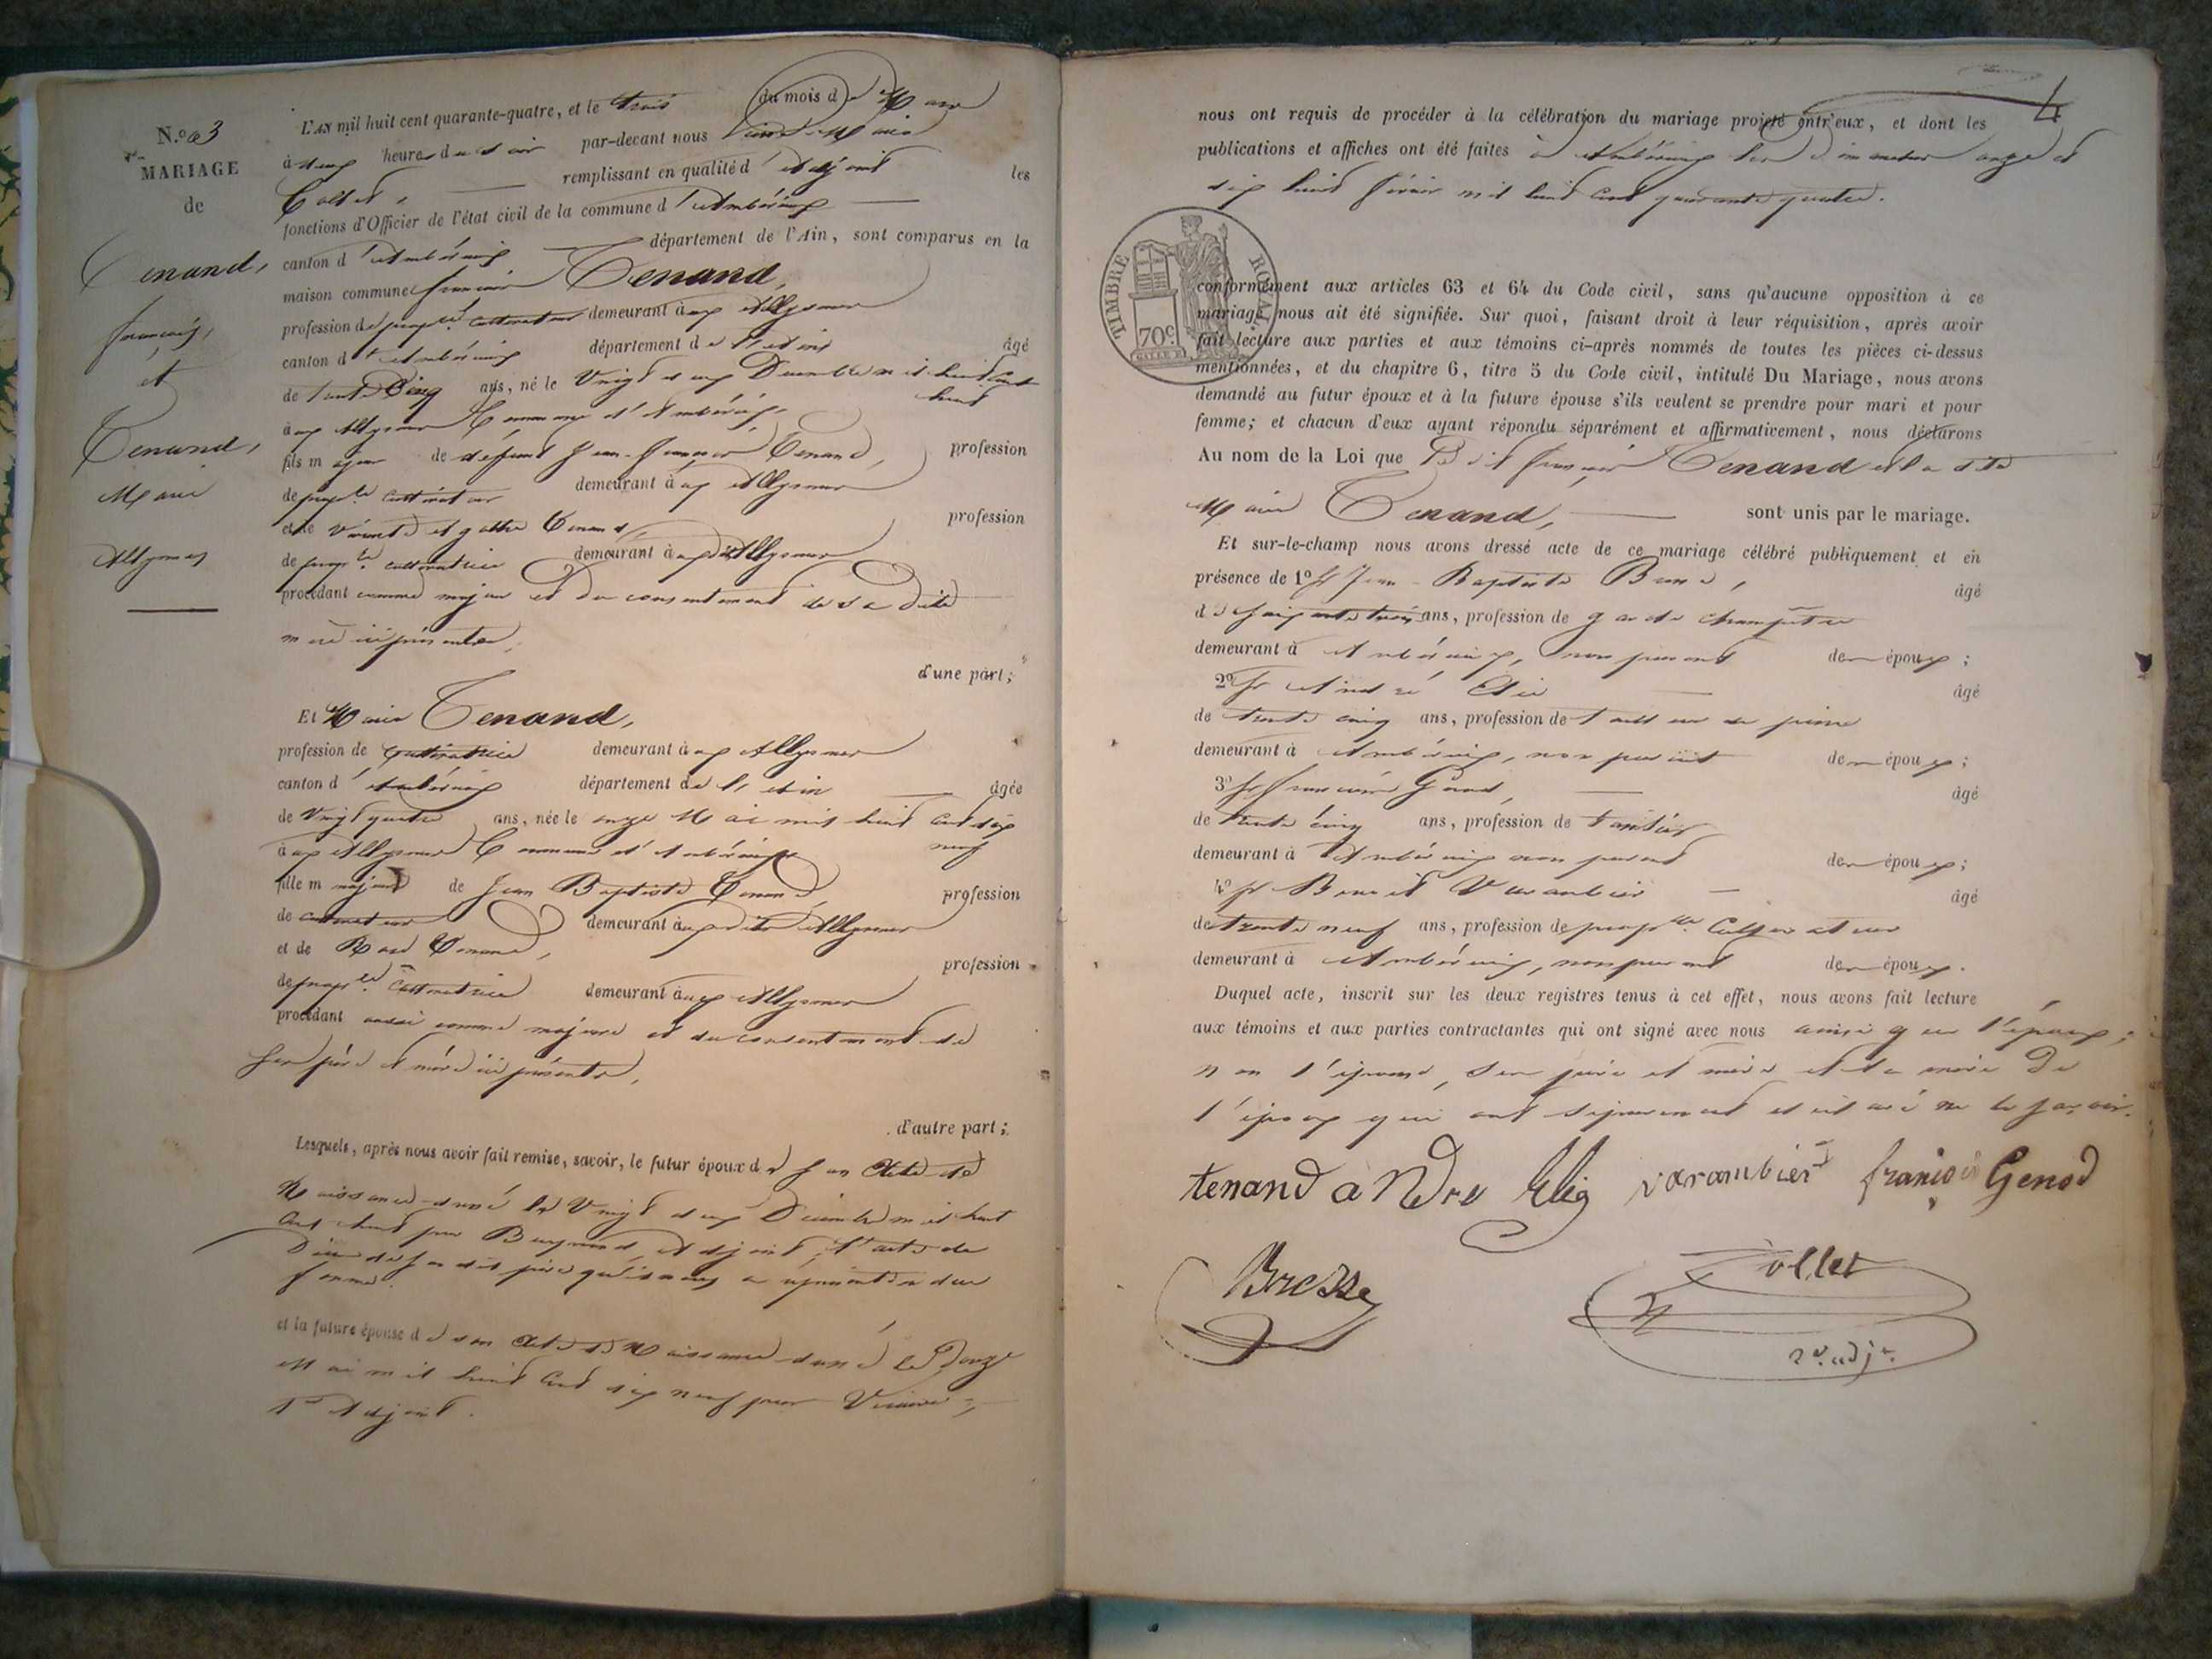 N.º 3
MARIAGE
de
Tenand,
françois,
et
Tenand,
Marie
Allymes
L'AN mil huit cent quarante-quatre, et le trois du mois de Mars
à deux heures du soir par-devant nous
Collet, remplissant en qualité d'adjoint les
fonctions d'Officier de l'état civil de la commune d'Ambérieux
canton d'Ambérieux département de l'Ain, sont comparus en la
maison commune françois Tenand,
profession de prop.re cultivateur demeurant aux Allymes
canton d'Ambérieux département de l'Ain âgé
de trente Cinq ans, né le Vingt deux Décembre mil huit Cent
huit
aux Allymes Commune d'Ambérieux,
fils majeur de défunt Jean-françois Tenand, profession
de prop.re cultivateur demeurant aux Allymes
et de vivante Tenand, profession
de prop.re cultivatrice demeurant aux dits Allymes
procédant comme majeur et du consentement de sa dite
mère ici présente,
d'une part;
Et Marie Tenand,
profession de cultivatrice demeurant aux Allymes
canton d'Ambérieux département de l'Ain âgée
de Vingt quatre ans, née le onze Mai mil huit Cent dix
neuf
aux Allymes Commune d'Ambérieux
fille majeure de Jean Baptiste Tenand, profession
de cultivateur demeurant aux dits Allymes
et de Tenand, profession
de prop.re Cultivatrice demeurant aux Allymes
procédant aussi comme majeure et du consentement de
ses père et mère ici présents,
d'autre part;
Lesquels, après nous avoir fait remise, savoir, le futur époux de son Acte de
Naissance donné le Vingt deux Décembre mil huit
Cent huit par adjoint, l'acte de
Décès de son dit père
et la future épouse de son Acte de Naissance donné le Douze
Mai mil huit Cent dix neuf par
1er Adjoint.
4
nous ont requis de procéder à la célébration du mariage projeté entr'eux, et dont les
publications et affiches ont été faites à Ambérieux les Dimanches onze et
dix huit février mil huit Cent quarante quatre.
TIMBRE ROYAL
70c
conformément aux articles 63 et 64 du Code civil, sans qu'aucune opposition à ce
mariage nous ait été signifiée. Sur quoi, faisant droit à leur réquisition, après avoir
fait lecture aux parties et aux témoins ci-après nommés de toutes les pièces ci-dessus
mentionnées, et du chapitre 6, titre 5 du Code civil, intitulé Du Mariage, nous avons
demandé au futur époux et à la future épouse s'ils veulent se prendre pour mari et pour
femme; et chacun d'eux ayant répondu séparément et affirmativement, nous déclarons
Au nom de la Loi que le dit françois Tenand et la dite
Marie Tenand, sont unis par le mariage.
Et sur-le-champ nous avons dressé acte de ce mariage célébré publiquement et en
présence de 1º Sr Jean-Baptiste âgé
de soixante trois ans, profession de garde champêtre
demeurant à Ambérieux, non parent des époux;
2º Sr André âgé
de trente cinq ans, profession de tailleur de pierre
demeurant à Ambérieux, non parent des époux;
3º Sr françois Genod, âgé
de trente cinq ans, profession de
demeurant à Ambérieux non parent des époux;
4º Sr Benoit Varambier âgé
de trente neuf ans, profession de prop.re Cultivateur
demeurant à Ambérieux, non parent des époux.
Duquel acte, inscrit sur les deux registres tenus à cet effet, nous avons fait lecture
aux témoins et aux parties contractantes qui ont signé avec nous ainsi que l'époux;
non l'épouse, ses père et mère et la mère de
l'époux qui ont séparément déclaré ne le savoir.
tenand andre varambier françois Genod
Bresse
Collet
2e. adjt.